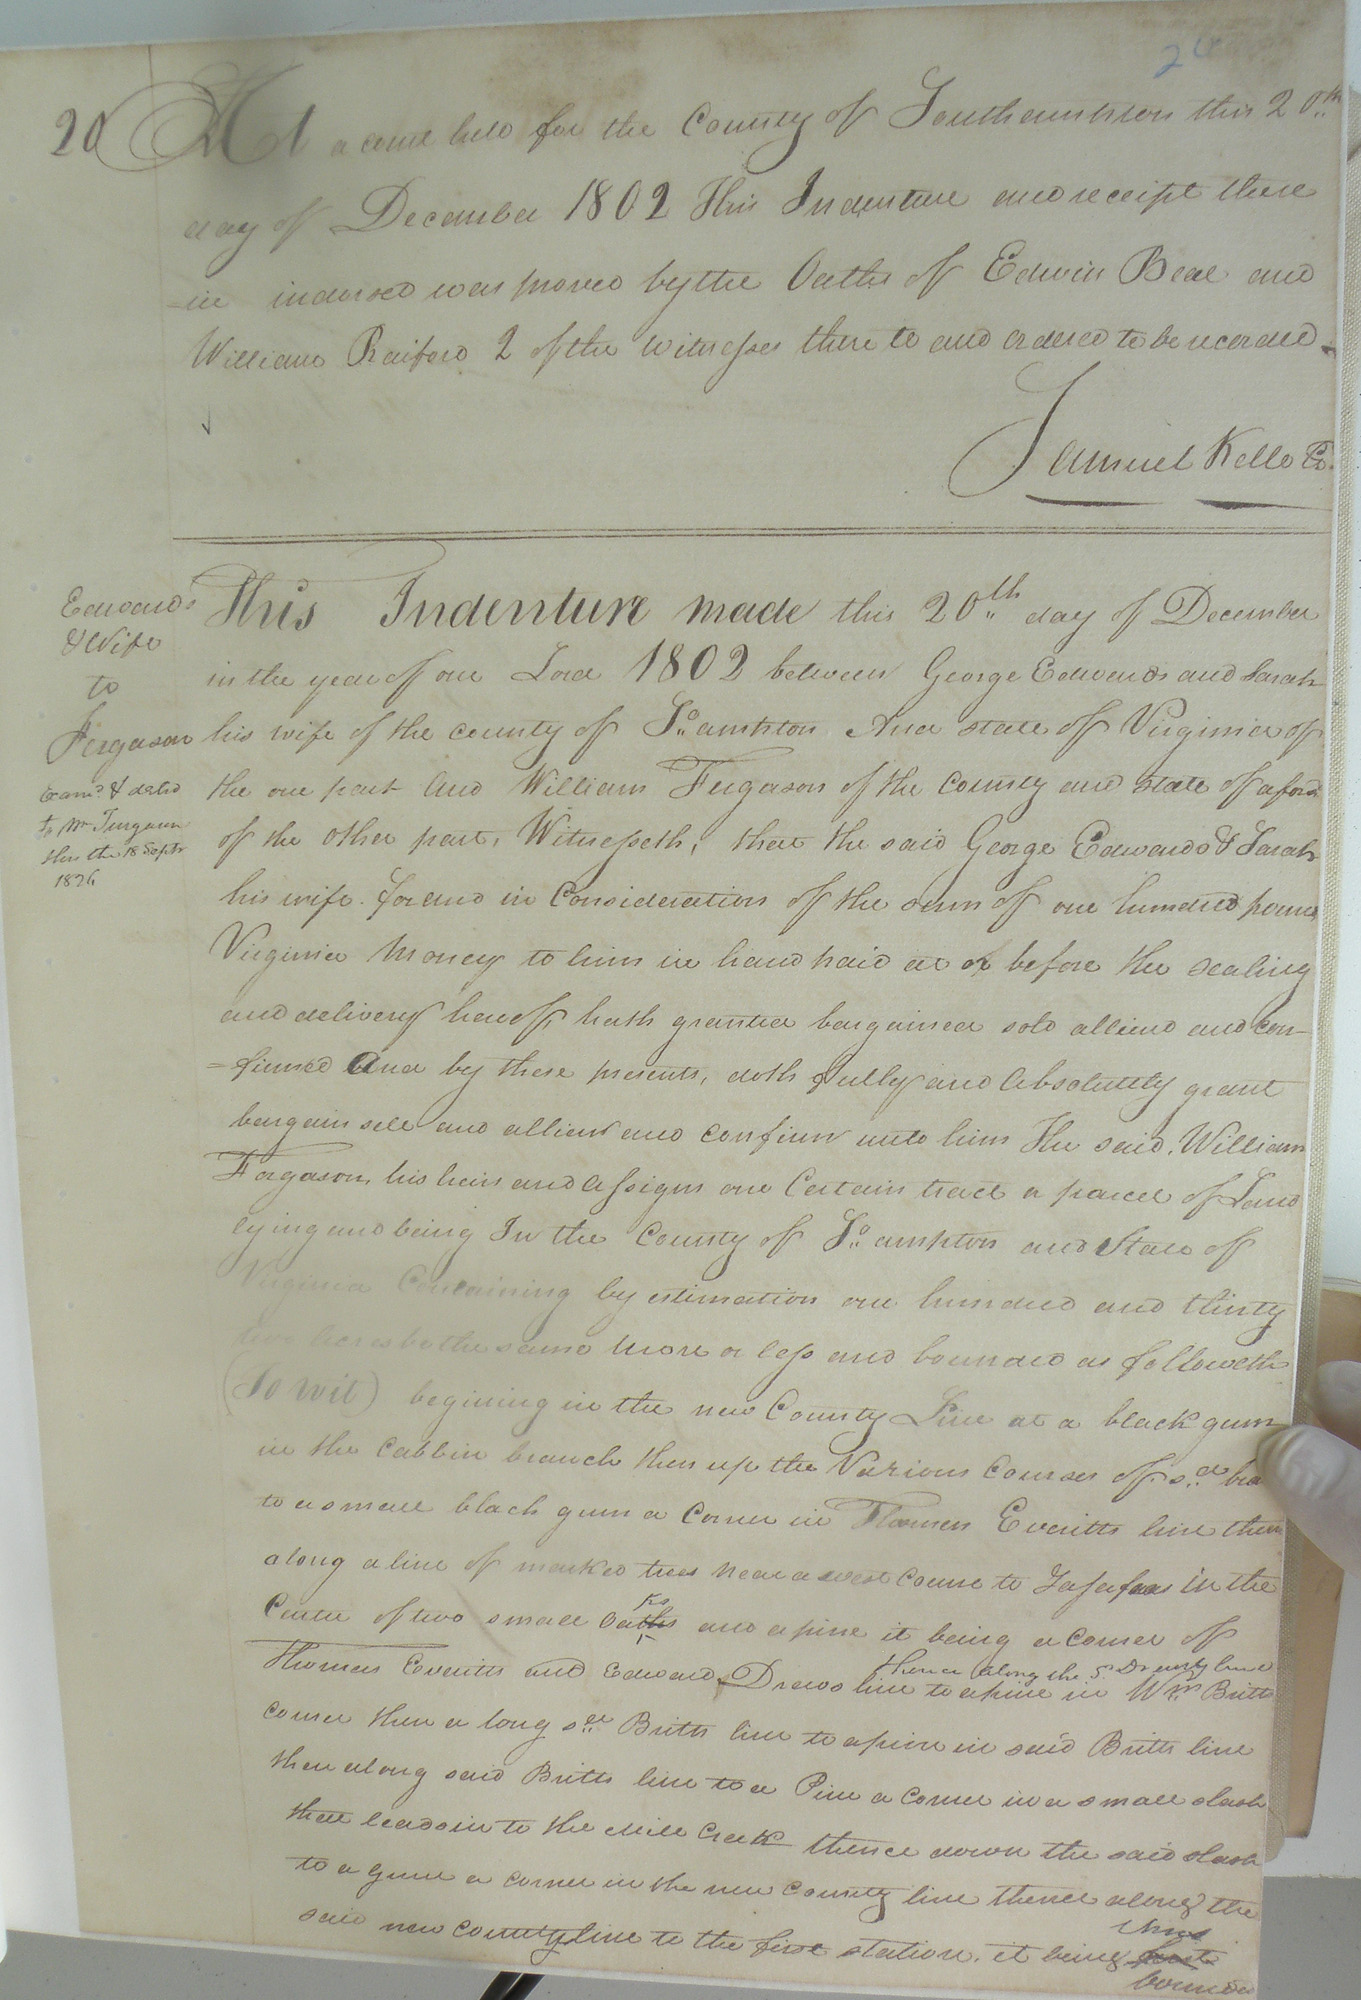 20
At a court held for the County of Southampton this 20th
day of December 1802 This Indenture and receipt there
-in indorsed was proved by the Oaths of Edwin Beal and
William Raiford 2 of the witnesses there to and ordered to be recorded
Samuel Kello Co.
Edwards
& Wife
to
Fergason
Exam.d & deld
to Mr
this the 18 Septr
1826
This Indenture made this 20th day of December
in the year of our Lord 1802 between George Edwards and Sarah
his wife of the county of So.ampton And state of Virginia of
the one part And William Fergason of the County and State of aford
of the other part, Witnesseth, that the said George Edwards & Sarah
his wife for and in Consideration of the sum of one hundred pound
Virginia Money to him in hand paid at or before the sealing
and delivery hereoff, hath granted bargained sold alliend and con-
=firmed And by these presents, doth fully and Absolutely grant
bargain sell and allien and confirm unto him The said William
Fergason, his heirs and Assigns one Certain tract a parcel of Land
lying and being In the County of So.ampton and State of
Virginia Containing by estimation one hundred and thirty
two Acres be the same more or less and bounded as followeth
(To wit) begining in the new County Line at a black gum
in the Cabbin branch then up the Various Courses of sd bra
to a small black gum a Corner in Thomas Everitts line then
along a line of marked trees near a west Course to in the
Center of two small Oaths ks and a pine it being a Corner of
thence along the sd Drewry line
Thomas Everitts and Edward Drews line to a pine in Wm Britts
corner then a long sd Britts line to a pine in said Britts line
then along said Britts line to a Pine a Corner in a small slash
that leads in to the Mill Creek thence down the said slash
to a gum a corner in the new County line thence along the
said new county line to the first station, it being
thus
bounded